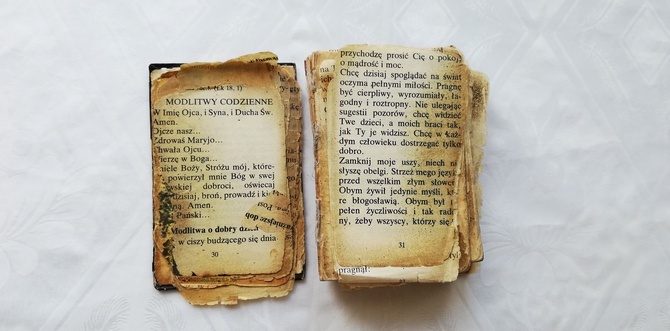 (Łk 18, 1)
MODLITWY CODZIENNE
W Imię Ojca, i Syna, i Ducha Św.
Amen.
Ojcze nasz...
Zdrowaś Maryjo...
Chwała Ojcu...
Wierzę w Boga...
niele Boży, Stróżu mój, które-
powierzył mnie Bóg w swej
wskiej dobroci, oświecaj
dzisiaj, broń, prowadź i kie
ną. Amen.
Pański...
ważniejsze dob
Modlitwa o dobry dzie
w ciszy budzącego się dnia
30
przychodzę prosić Cię o pokój
o mądrość i moc.
Chcę dzisiaj spoglądać na świat
oczyma pełnymi miłości. Pragnę
być cierpliwy, wyrozumiały, ła-
godny i roztropny. Nie ulegając
sugestii pozorów, chcę widzieć
Twe dzieci, a moich braci tak,
jak Ty je widzisz. Chcę w każ-
dym człowieku dostrzegać tylko
dobro.
Zamknij moje uszy, niech ni
słyszę obelgi. Strzeż mego język
przed wszelkim złym słowem
Obym żywił jedynie myśli, k
re błogosławią. Obym był
pełen życzliwości i tak rad
ny, żeby wszyscy, którzy się
31
pragnął: